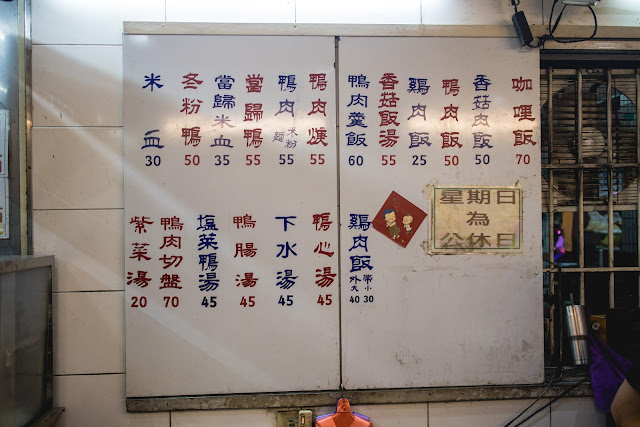 咖哩飯 70
香菇肉飯 50
鴨肉飯 50
鷄肉飯 25
香菇飯湯 55
鴨肉羹飯 60
鴨肉焿 55
鴨肉米粉麵 55
當歸鴨 55
當歸米血 35
冬粉鴨 50
米血 30
星期日
為
公休日
鷄肉飯
帶小 30
外大 40
鴨心湯 45
下水湯 45
鴨腸湯 45
塩菜鴨湯 45
鴨肉切盤 70
紫菜湯 20